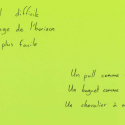 difficile
de l'horizon
plus facile
Un pull comme
Un bonnet comme
Un chevalier à